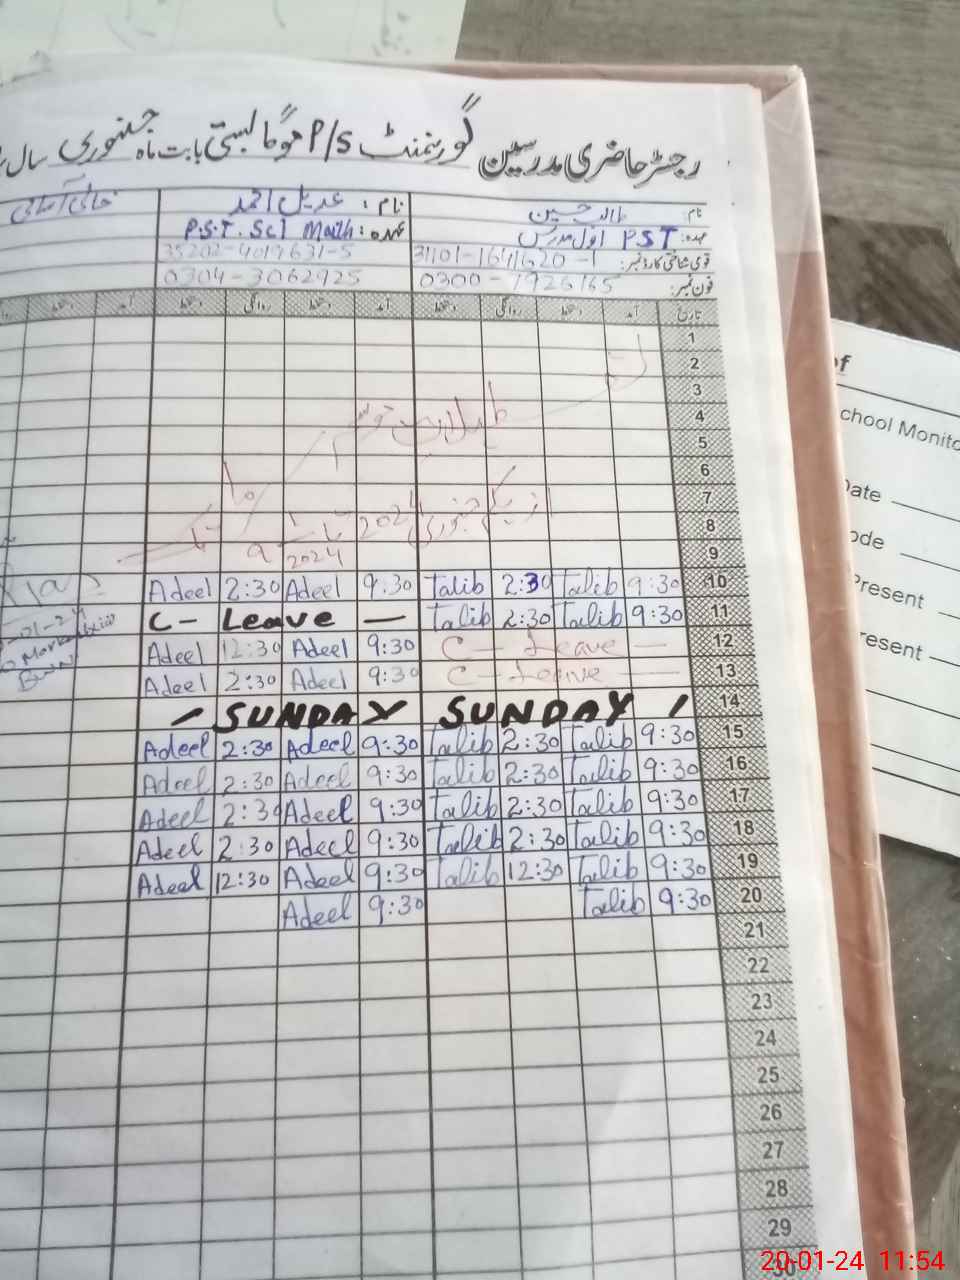 رجسٹر حاضری مدرسین گورنمنٹ P/s موگا بستی بابت ماہ جنوری سال
نام: طالب حسین نام: عدیل احمد خالی آسامی
عہدہ: PST اول مدرس عہدہ: P.S.T. Sci Math
قومی شناختی کارڈ نمبر: 31101-1641620-1 35202-4019631-5
فون نمبر: 0300-7926165 0304-3062925
تاریخ آمد دستخط روانگی دستخط آمد دستخط روانگی دستخط آمد دستخط
1
2
3
4
5
6
7
8 از یکم جنوری 2024 تا
9 9 2024
10 9:30 Talib 2:30 Talib 9:30 Adeel 2:30 Adeel
11 9:30 Talib 2:30 Talib C- Leave —
12 C — Leave — 9:30 Adeel 12:30 Adeel
13 C — Leave — 9:30 Adeel 2:30 Adeel
14 SUNDAY SUNDAY
15 9:30 Talib 2:30 Talib 9:30 Adeel 2:30 Adeel
16 9:30 Talib 2:30 Talib 9:30 Adeel 2:30 Adeel
17 9:30 Talib 2:30 Talib 9:30 Adeel 2:30 Adeel
18 9:30 Talib 2:30 Talib 9:30 Adeel 2:30 Adeel
19 9:30 Talib 12:30 Talib 9:30 Adeel 12:30 Adeel
20 9:30 Talib 9:30 Adeel
21
22
23
24
25
26
27
28
29
30
of
chool Monito
Date
ode
Present
resent
20-01-24 11:54